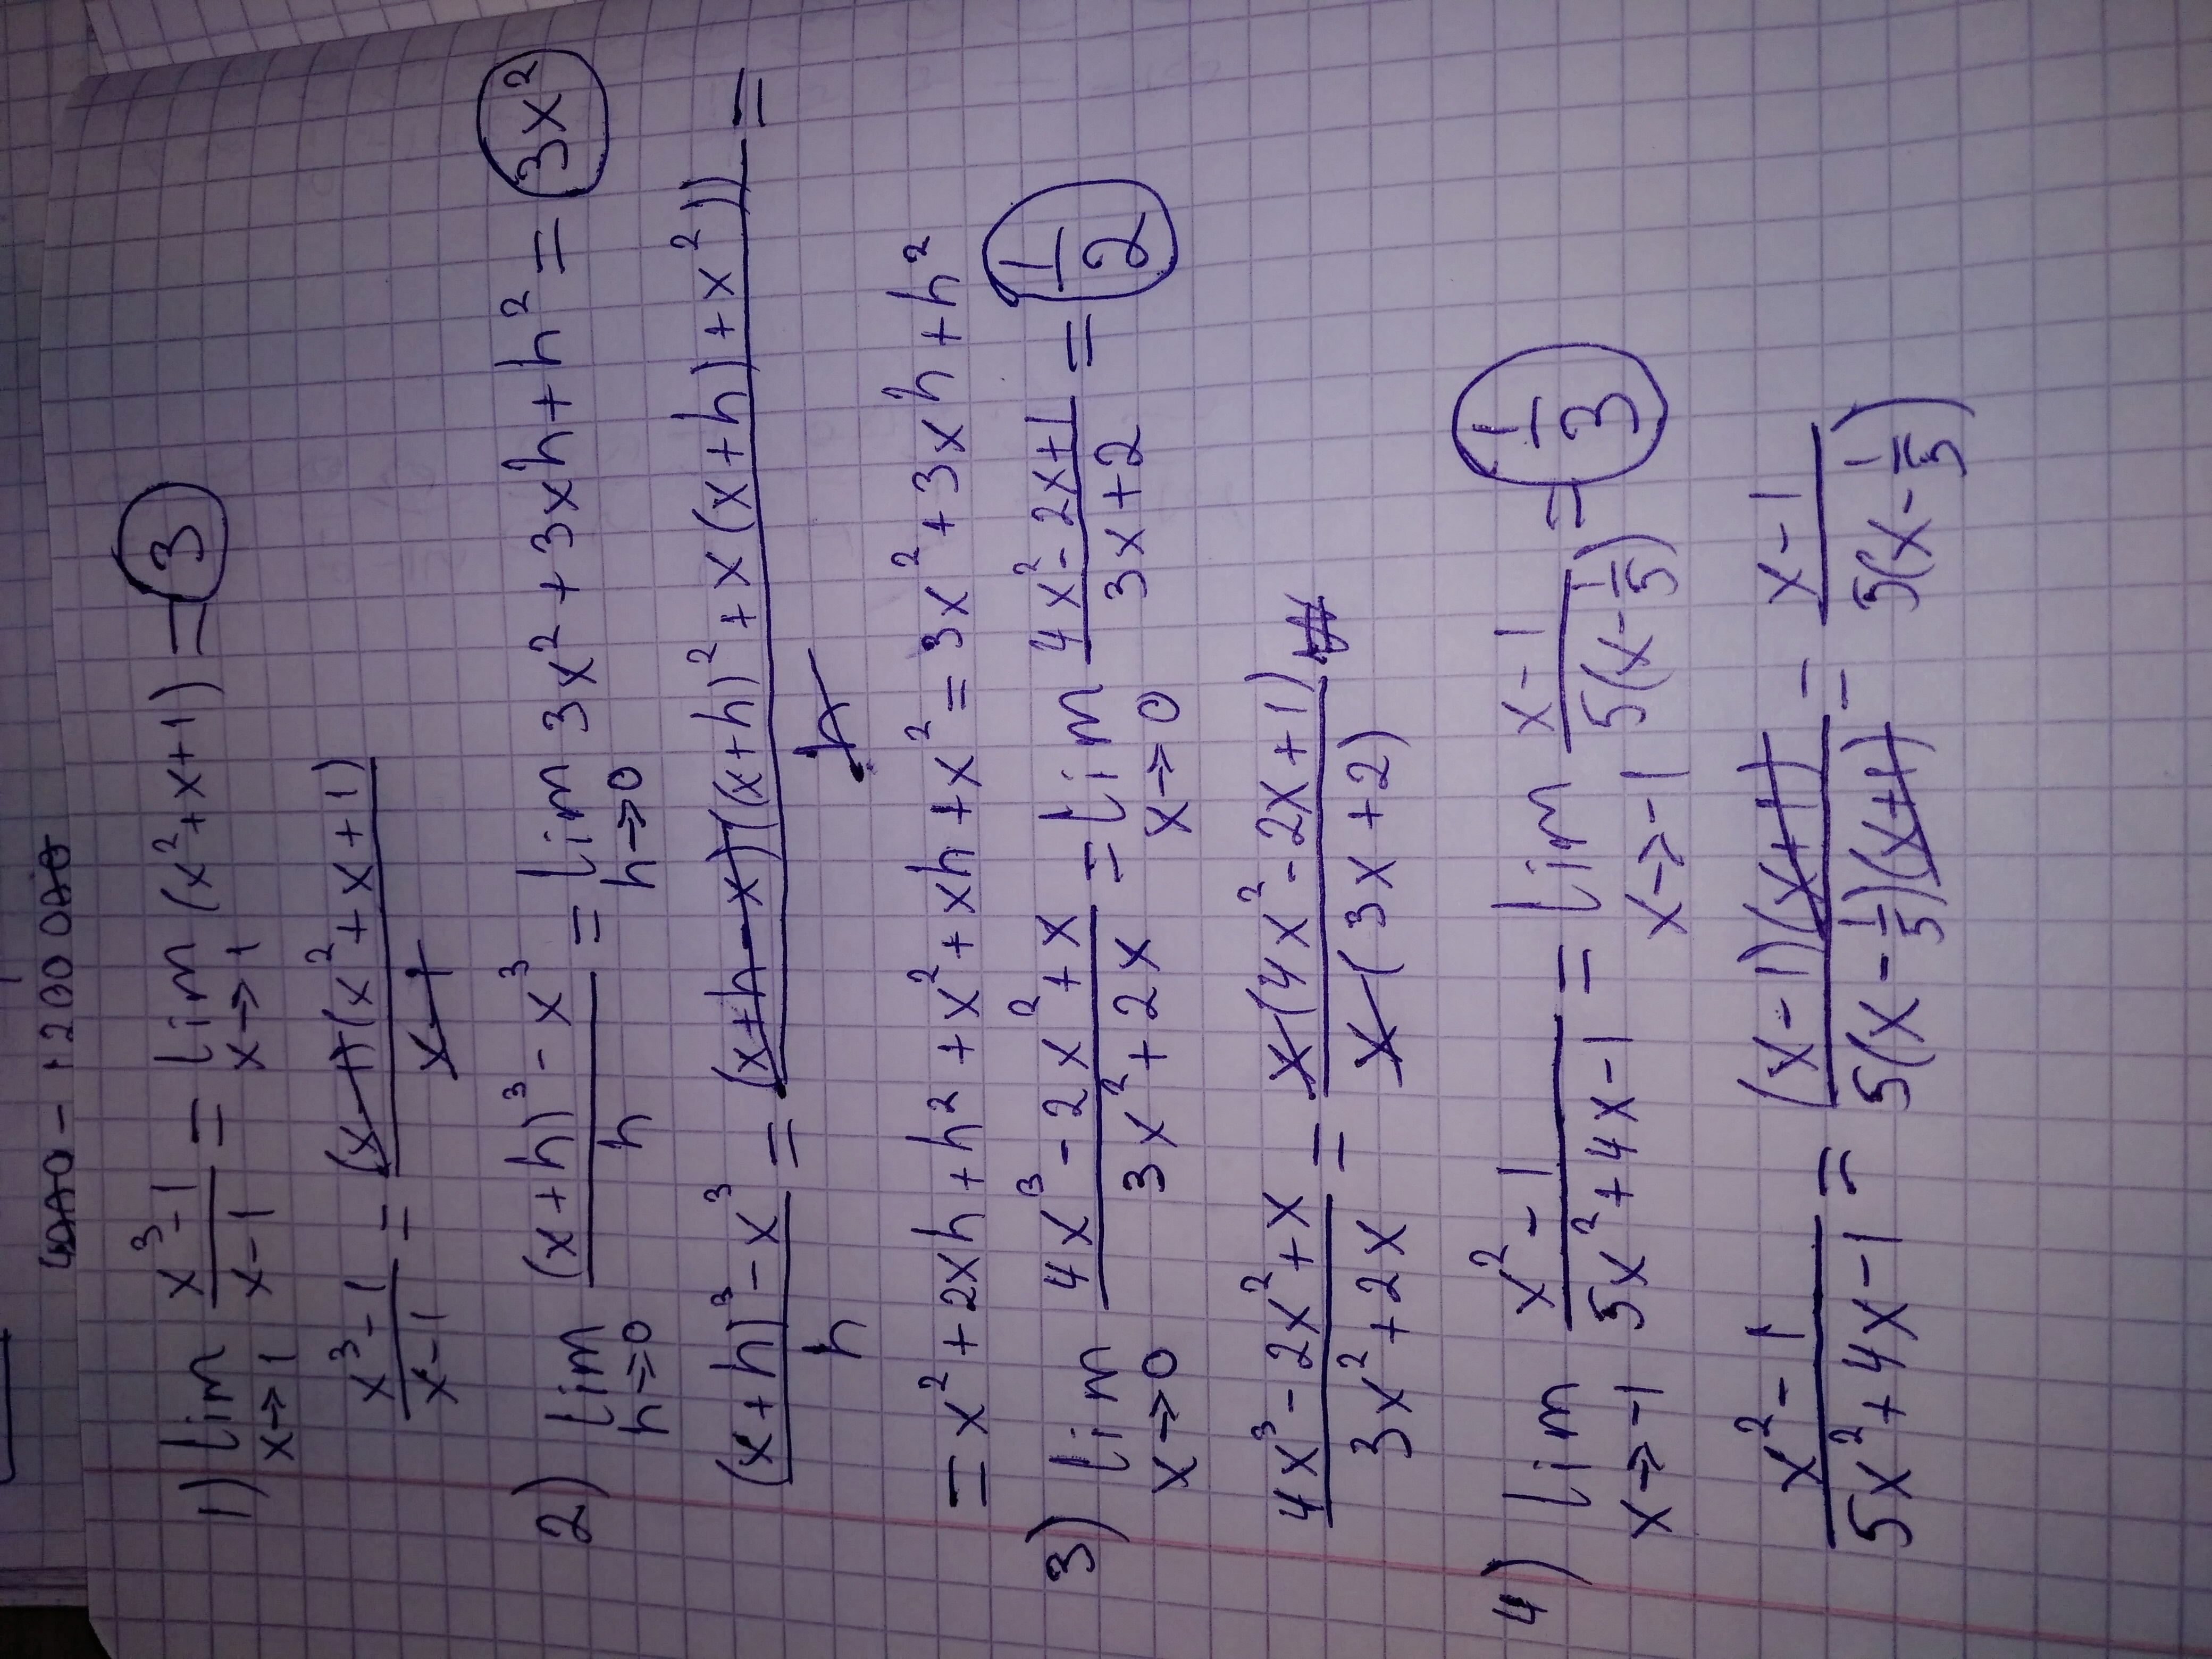 1) lim x→1 (x³-1)/(x-1) = lim x→1 (x²+x+1) = 3
(x³-1)/(x-1) = (x-1)(x²+x+1)/(x-1)
2) lim h→0 ((x+h)³-x³)/h = lim h→0 3x²+3xh+h² = 3x²
((x+h)³-x³)/h = (x+h-x)((x+h)²+x(x+h)+x²))/h =
= x²+2xh+h²+x²+xh+x² = 3x²+3xh+h²
3) lim x→0 (4x³-2x²+x)/(3x²+2x) = lim x→0 (4x²-2x+1)/(3x+2) = 1/2
(4x³-2x²+x)/(3x²+2x) = x(4x²-2x+1)/x(3x+2)
4) lim x→-1 (x²-1)/(5x²+4x-1) = lim x→-1 (x-1)/5(x-1/5) = 1/3
(x²-1)/(5x²+4x-1) = (x-1)(x+1)/5(x-1/5)(x+1) = (x-1)/5(x-1/5)